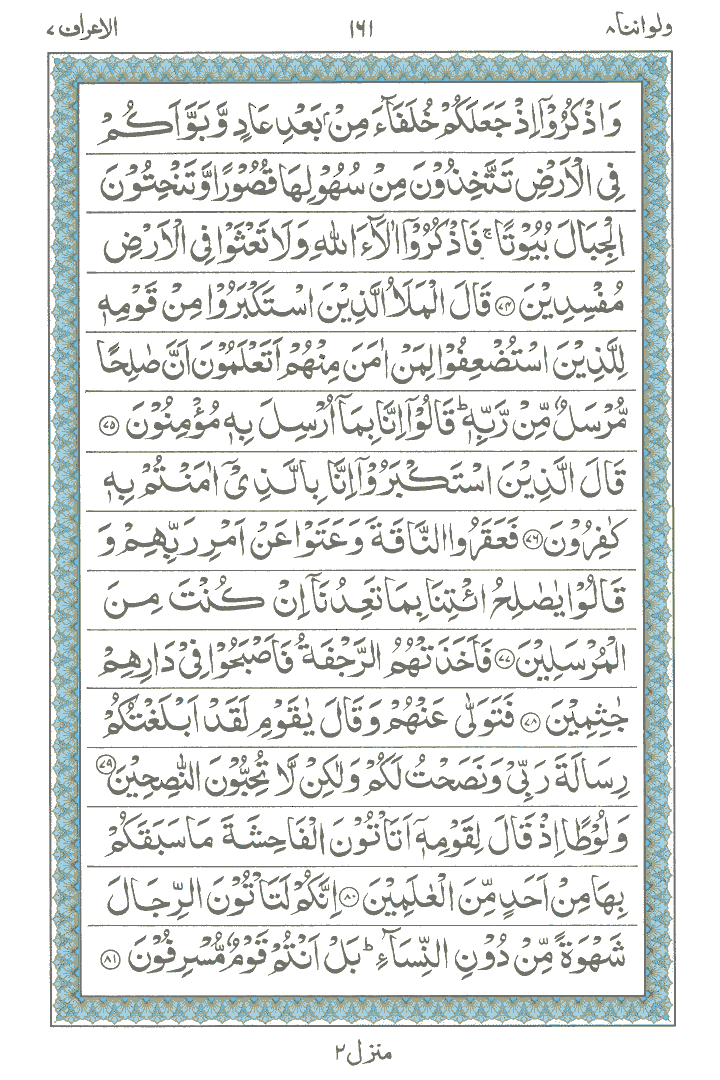 ولواننا ٨ ١٦١ الاعراف ٧
وَاذْكُرُوْۤا اِذْ جَعَلَكُمْ خُلَفَآءَ مِنْۢ بَعْدِ عَادٍ وَّ بَوَّاَكُمْ
فِی الْاَرْضِ تَتَّخِذُوْنَ مِنْ سُهُوْلِهَا قُصُوْرًا وَّ تَنْحِتُوْنَ
الْجِبَالَ بُیُوْتًا ۚ فَاذْكُرُوْۤا اٰلَآءَ اللّٰهِ وَ لَا تَعْثَوْا فِی الْاَرْضِ
مُفْسِدِیْنَ ﴿٧٤﴾ قَالَ الْمَلَاُ الَّذِیْنَ اسْتَكْبَرُوْا مِنْ قَوْمِهٖ
لِلَّذِیْنَ اسْتُضْعِفُوْا لِمَنْ اٰمَنَ مِنْهُمْ اَتَعْلَمُوْنَ اَنَّ صٰلِحًا
مُّرْسَلٌ مِّنْ رَّبِّهٖ ؕ قَالُوْۤا اِنَّا بِمَاۤ اُرْسِلَ بِهٖ مُؤْمِنُوْنَ ﴿٧٥﴾
قَالَ الَّذِیْنَ اسْتَكْبَرُوْۤا اِنَّا بِالَّذِیْۤ اٰمَنْتُمْ بِهٖ
كٰفِرُوْنَ ﴿٧٦﴾ فَعَقَرُوا النَّاقَةَ وَ عَتَوْا عَنْ اَمْرِ رَبِّهِمْ وَ
قَالُوْا یٰصٰلِحُ ائْتِنَا بِمَا تَعِدُنَاۤ اِنْ كُنْتَ مِنَ
الْمُرْسَلِیْنَ ﴿٧٧﴾ فَاَخَذَتْهُمُ الرَّجْفَةُ فَاَصْبَحُوْا فِیْ دَارِهِمْ
جٰثِمِیْنَ ﴿٧٨﴾ فَتَوَلّٰی عَنْهُمْ وَ قَالَ یٰقَوْمِ لَقَدْ اَبْلَغْتُكُمْ
رِسَالَةَ رَبِّیْ وَ نَصَحْتُ لَكُمْ وَ لٰكِنْ لَّا تُحِبُّوْنَ النّٰصِحِیْنَ ﴿٧٩﴾
وَ لُوْطًا اِذْ قَالَ لِقَوْمِهٖۤ اَتَاْتُوْنَ الْفَاحِشَةَ مَا سَبَقَكُمْ
بِهَا مِنْ اَحَدٍ مِّنَ الْعٰلَمِیْنَ ﴿٨٠﴾ اِنَّكُمْ لَتَاْتُوْنَ الرِّجَالَ
شَهْوَةً مِّنْ دُوْنِ النِّسَآءِ ؕ بَلْ اَنْتُمْ قَوْمٌ مُّسْرِفُوْنَ ﴿٨١﴾
منزل ٢